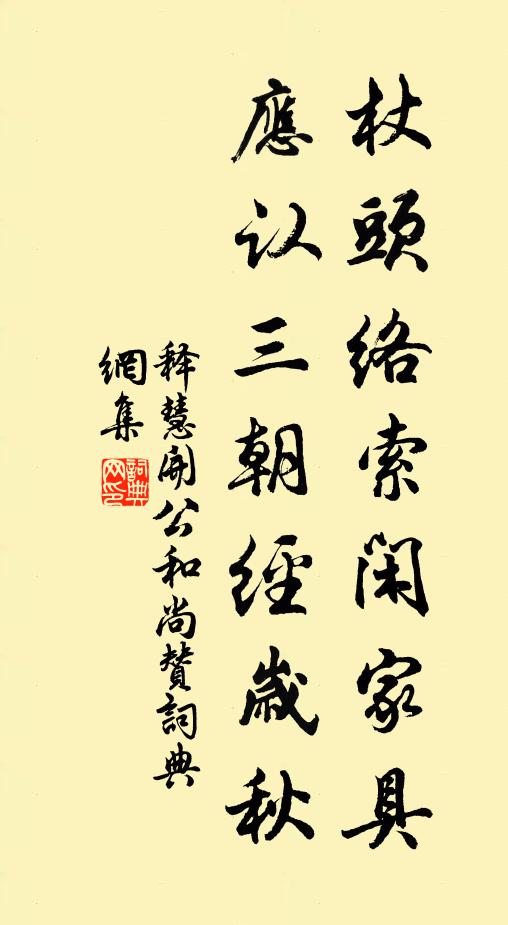 杖頭絡索閑家具
應认三朝經歲秋
释慧開公和尚贊詞典
網集
詞典
网印